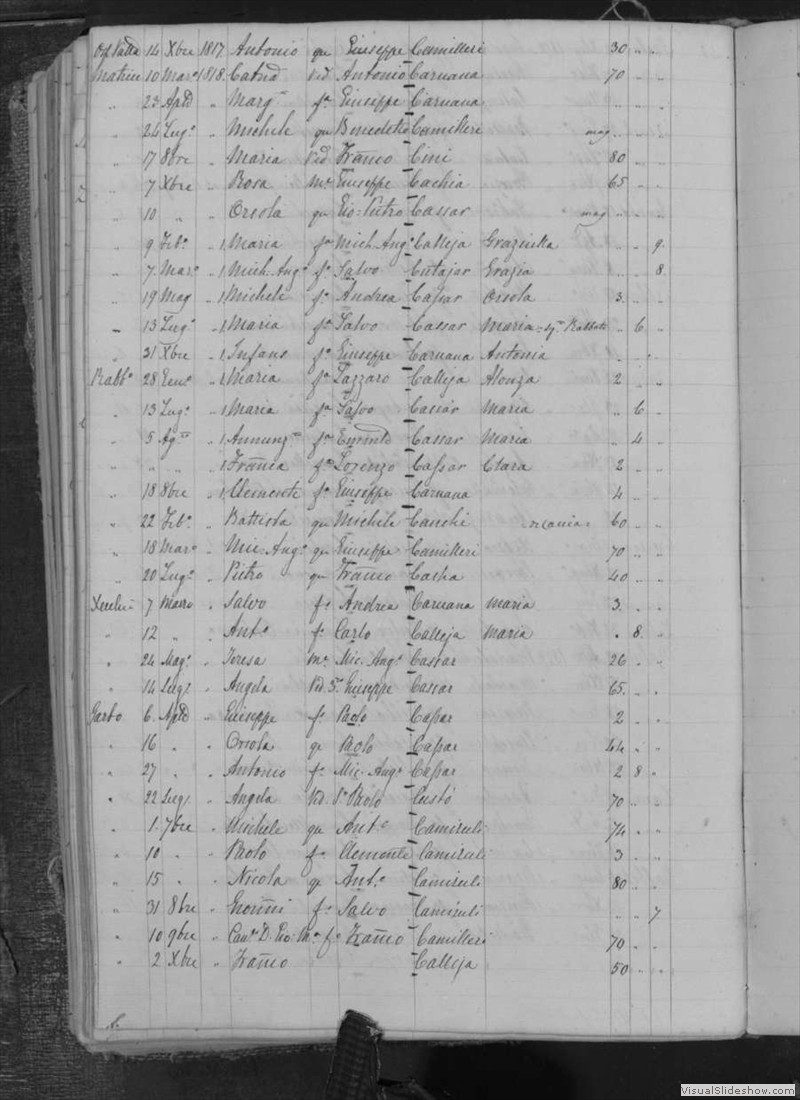 14 Xbre 1817 Antonio qu Giuseppe Camilleri 30 " "
Matrice 10 Mar° 1818 Catna Vid Antonio Caruana 70 " "
" 23 Aple " Marg f° Giuseppe Caruana " " "
" 24 Lug° " Michele qu Benedetto Camilleri mag " "
" 17 8bre " Maria Vid Franco Cini 80 " "
" 7 Xbre " Rosa M° Giuseppe Cachia 65 " "
" 10 " " Orsola qu Gio= Pietro Cassar mag " "
" 9 Feb° " 1 Maria f° Mich. Ang° Calleja Graziulla " " 9
" 7 Mar° " 1 Mich. Ang° f° Salvo Cutajar Grazia " " 8
" 19 Mag " 1 Michele f° Andrea Cassar Orsola 3 " "
" 13 Lug° " 1 Maria f° Salvo Cassar Maria " 6 "
" 31 Xbre " 1 Infans f° Giuseppe Caruana Antonia " " "
Rabb° 28 Gen° " 1 Maria f° Lazzaro Calleja Alonza 2 " "
" 13 Lug° " 1 Maria f° Salvo Cassar Maria " 6 "
" 5 Ag " 1 Annunz f° Cassar Maria " 4 "
" " " " 1 Franca f° Lorenzo Cassar Clara 2 " "
" 18 8bre " 1 Clemente f° Giuseppe Caruana 4 " "
" 22 Feb° " Battista qu Michele Cauchi 60 " "
" 18 Mar° " Mic. Ang° qu Giuseppe Camilleri 70 " "
" 20 Lug° " Pietro qu Franco 40 " "
7 Marzo " Salvo f° Andrea Caruana Maria 3 " "
" 12 " " Ant° f° Carlo Calleja Maria " 8 "
" 24 Mag° " Teresa M° Mic. Ang° Cassar 26 " "
" 14 Lug° " Angela Vid. Giuseppe Cassar 65 " "
Garbo 6 Aple " Giuseppe f° Paolo Cassar 2 " "
" 16 " " Orsola qu Paolo Cassar 44 " "
" 27 " " Antonio f° Mic. Ang° Cassar 2 8 "
" 22 Lug° " Angela Vid. Paolo Custó 70 " "
" 1 7bre " Michele qu Ant° Camisuli 74 " "
" 10 " " Paolo f° Clemente Camisuli 3 " "
" 15 " " Nicola qu Ant° Camisuli 80 " "
" 31 8bre " f° Salvo Camisuli " " 7
" 10 9bre " Can° D. Gio: M° f° Franco Camilleri 70 " "
" 2 Xbre " Franco Calleja 50 " "
VisualSlideshow.com